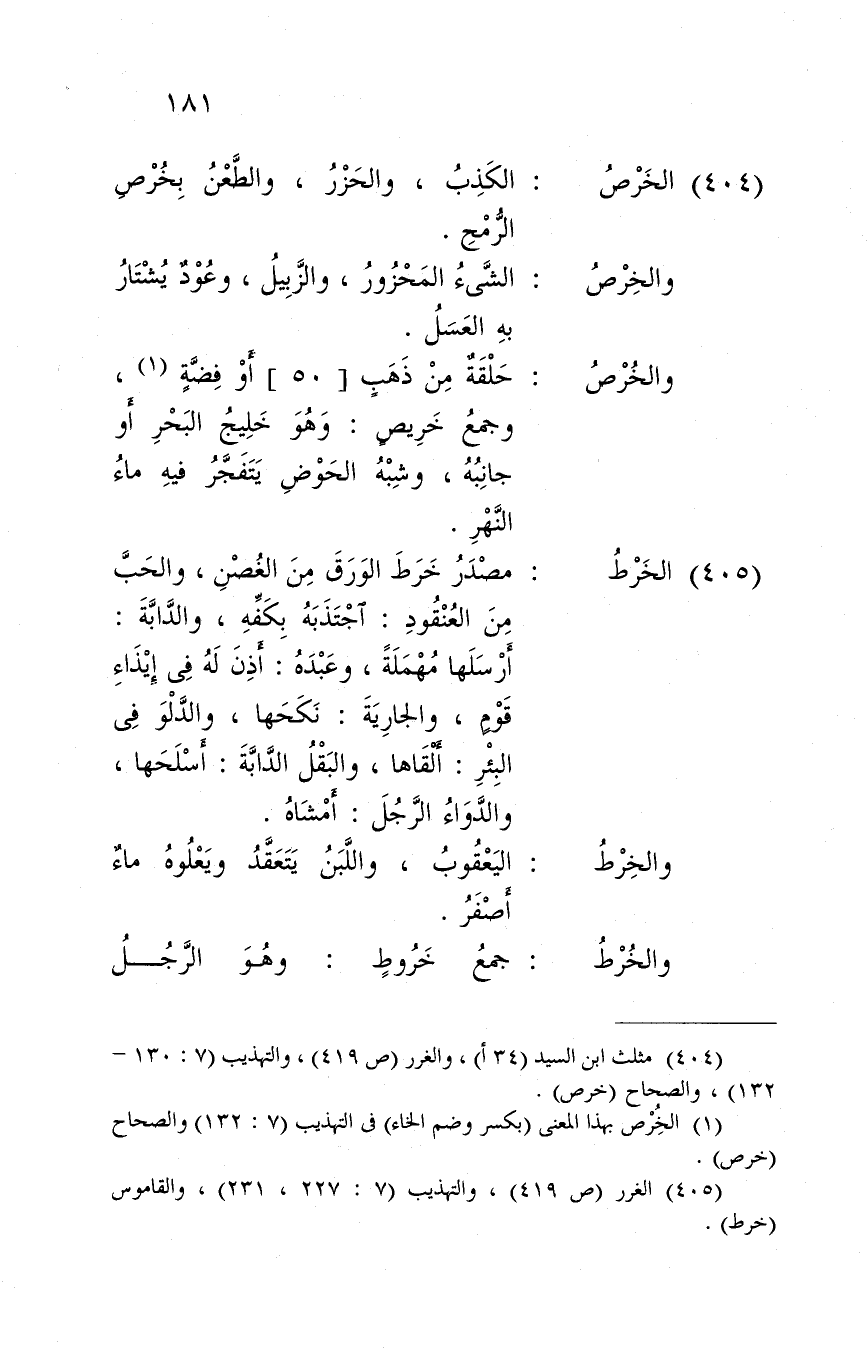 ١٨١
(٤٠٤) الخَرْصُ : الكَذِبُ ، والحَزْرُ ، والطَّعْنُ بِخُرْصِ
الرُّمْحِ .
والخِرْصُ : الشَّىءُ المَحْزُورُ ، والزَّبِيلُ ، وعُوْدٌ يُشْتَارُ
بهِ العَسَلُ .
والخُرْصُ : حَلْقَةٌ مِنْ ذَهَبٍ [ ٥٠ ] أَوْ فِضَّةٍ (١) ،
وجمعُ خَرِيصٍ : وَهُوَ خَلِيجُ البَحْرِ أَو
جانِبُهُ ، وشِبْهُ الحَوْضِ يَتَفَجَّرُ فيهِ ماءُ
النَّهْرِ .
(٤٠٥) الخَرْطُ : مصْدَرُ خَرَطَ الوَرَقَ مِنَ الغُصْنِ ، والحَبَّ
مِنَ العُنْقُودِ : ٱجْتَذَبَهُ بِكَفِّهِ ، والدَّابَّةَ :
أَرْسَلَها مُهْمَلَةً ، وعَبْدَهُ : أَذِنَ لَهُ فِى إِيْذَاءِ
قَوْمٍ ، والجارِيَةَ : نَكَحَها ، والدَّلْوَ فِى
البِئْرِ : أَلْقَاها ، والبَقْلُ الدَّابَّةَ : أَسْلَحَها ،
والدَّوَاءُ الرَّجُلَ : أَمْشَاهُ .
والخِرْطُ : اليَعْقُوبُ ، واللَّبَنُ يَتَعَقَّدُ ويَعْلُوهُ ماءٌ
أَصْفَرُ .
والخُرْطُ : جمعُ خَرُوطٍ : وهُوَ الرَّجُـــلُ
(٤٠٤) مثلث ابن السيد (٣٤ أ) ، والغرر (ص ٤١٩) ، والتهذيب (٧ : ١٣٠ –
١٣٢) ، والصحاح (خرص) .
(١) الخُِرْص بهذا المعنى (بكسر وضم الخاء) فى التهذيب (٧ : ١٣٢) والصحاح
(خرص) .
(٤٠٥) الغرر (ص ٤١٩) ، والتهذيب (٧ : ٢٢٧ ، ٢٣١) ، والقاموس
(خرط) .